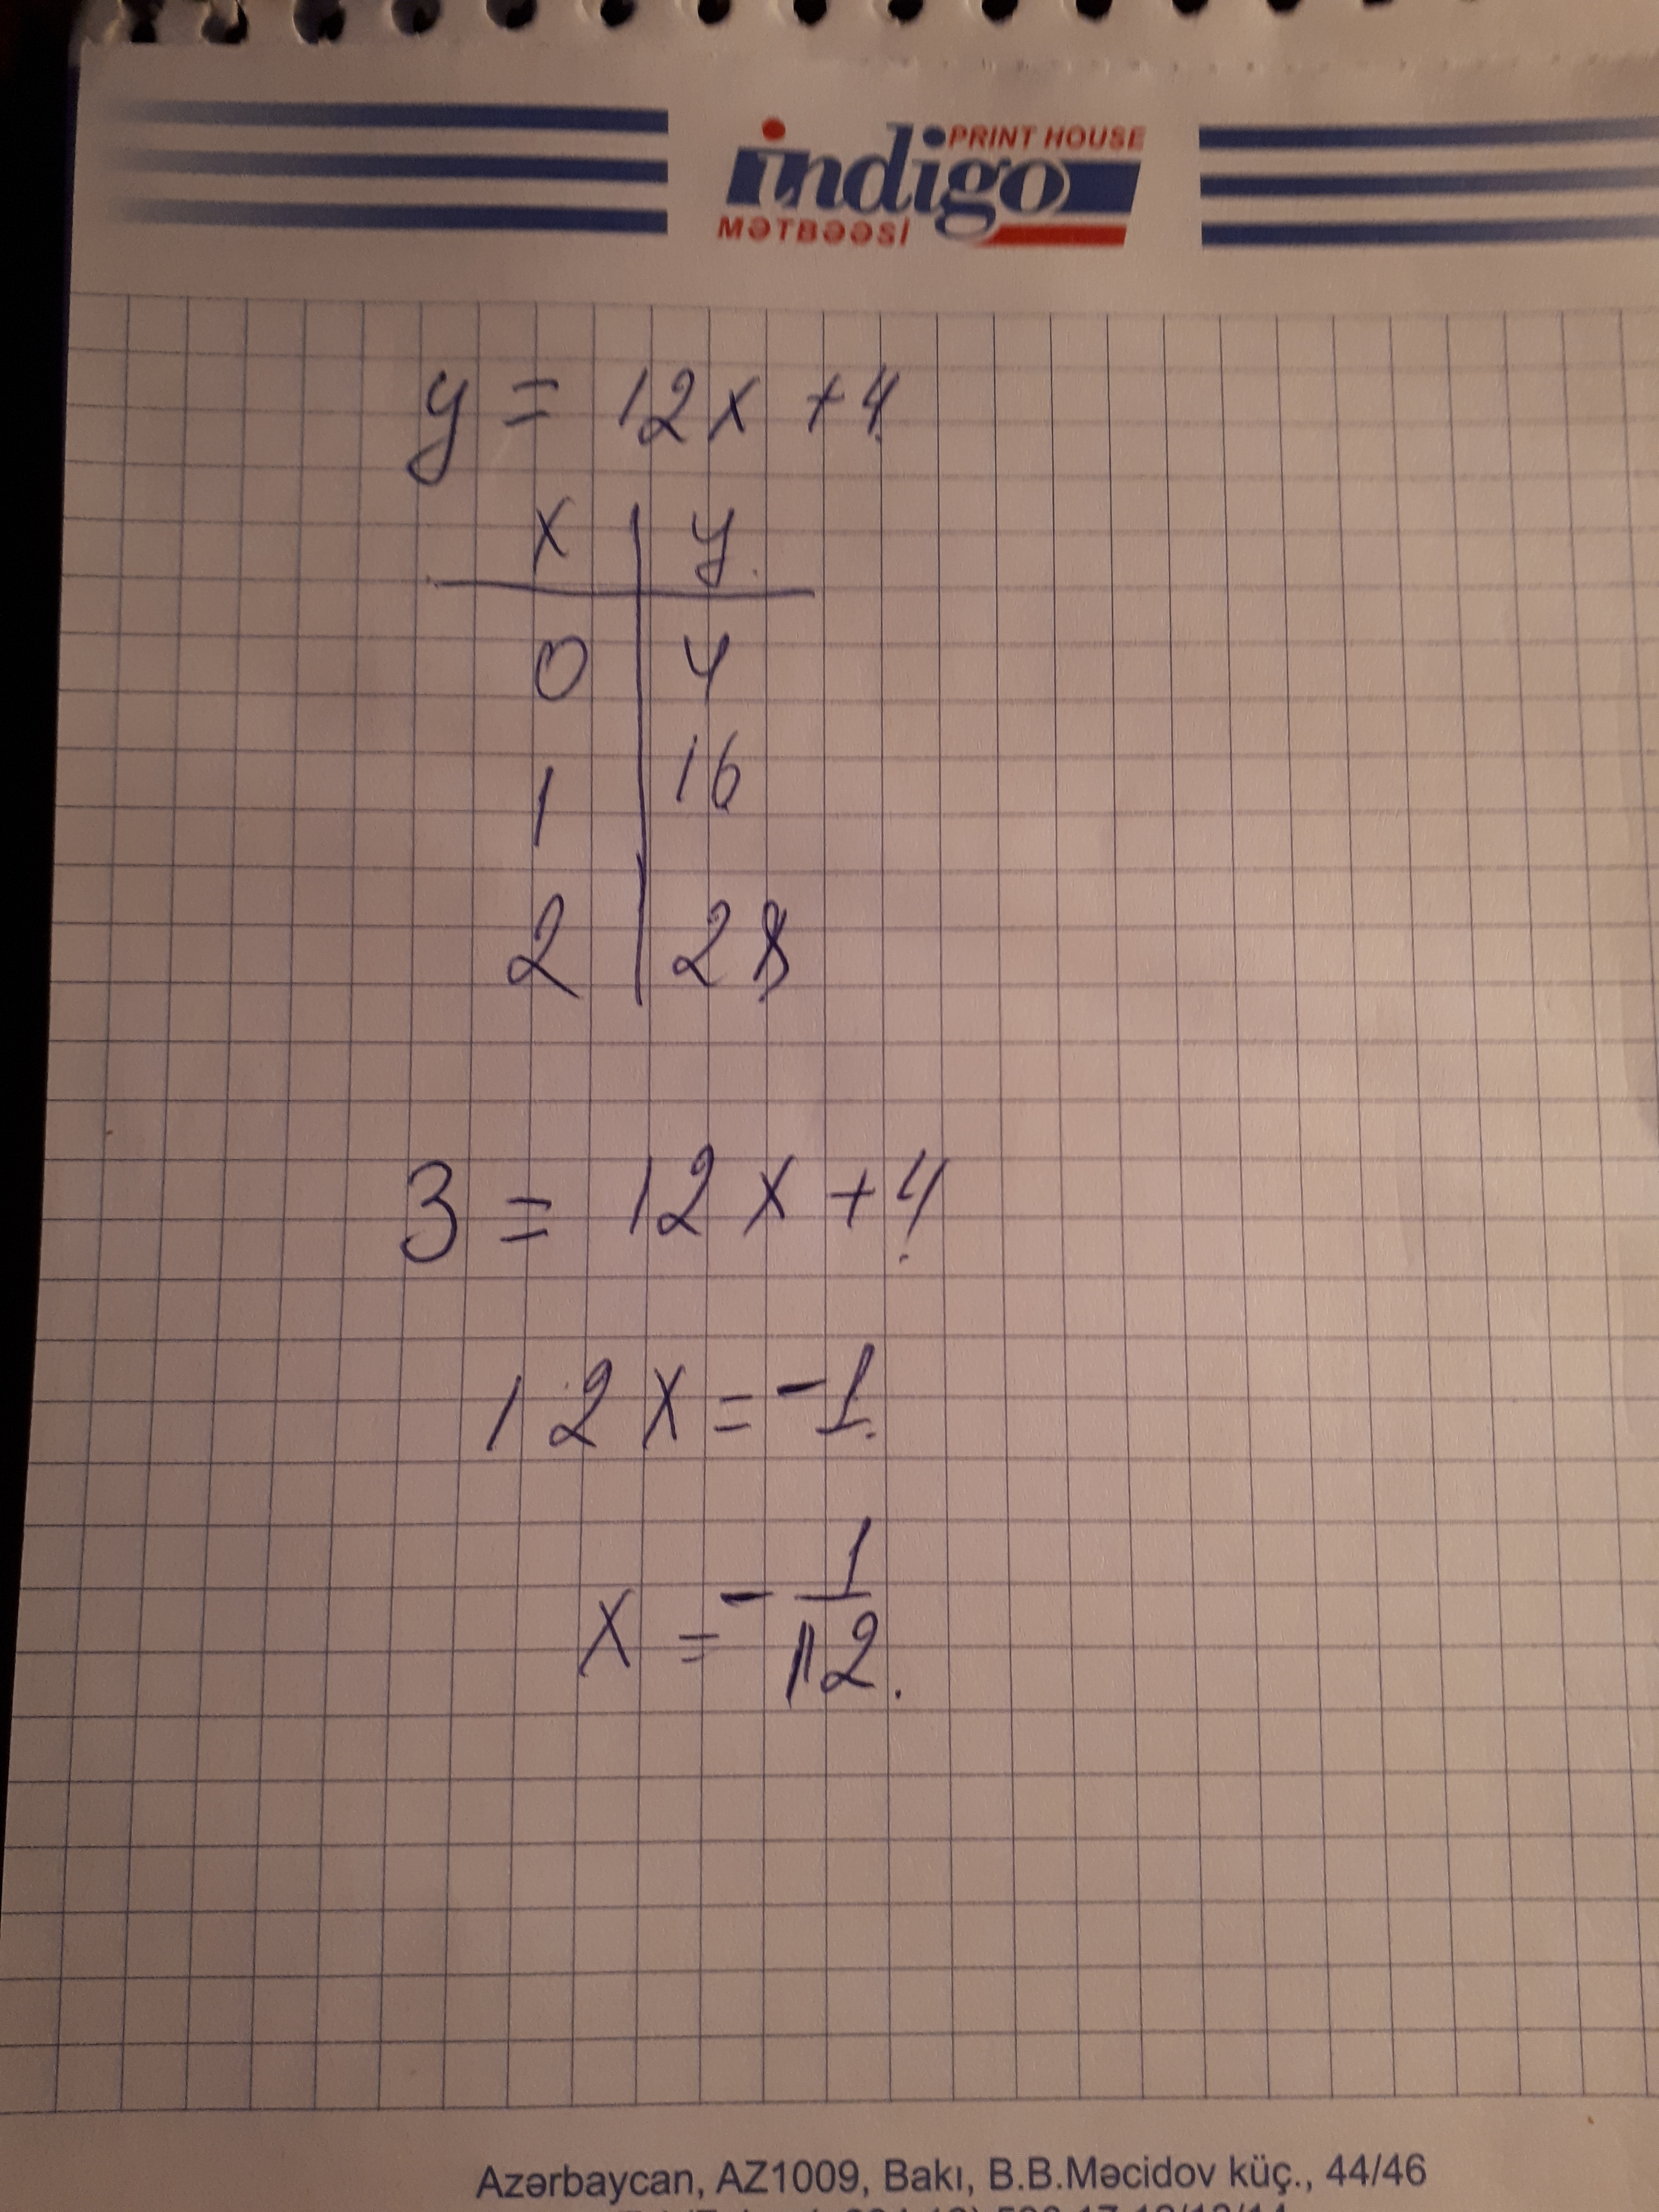 PRINT HOUSE
indigo
MƏTBƏƏSİ
y = 12x + 4
x | y
0 | 4
1 | 16
2 | 28
3 = 12x + 4
12x = -1.
x = - 1/12.
Azərbaycan, AZ1009, Bakı, B.B.Məcidov küç., 44/46